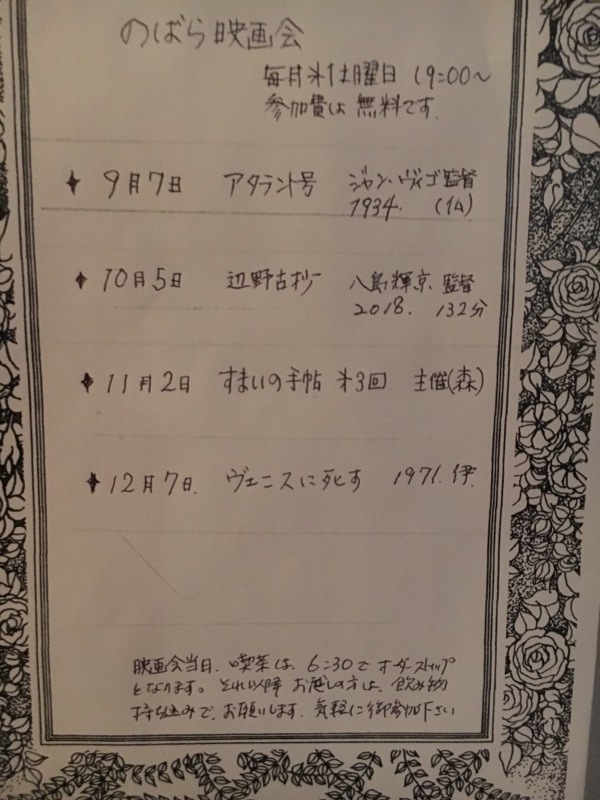 のばら映画会
毎月第1土曜日 19:00〜
参加費は 無料です.
9月7日 アタラント号 ジャン・ヴィゴ監督
1934. (仏)
10月5日 辺野古抄 八島輝京 監督
2018. 132分
11月2日 すまいの手帖 第3回 主催(森)
12月7日. ヴェニスに死す 1971. 伊.
映画会当日. 喫茶は 6:30で オーダーストップ
となります。それ以降 お越しの方は、飲み物
持ち込みで、お願いします. 気軽に御参加下さい